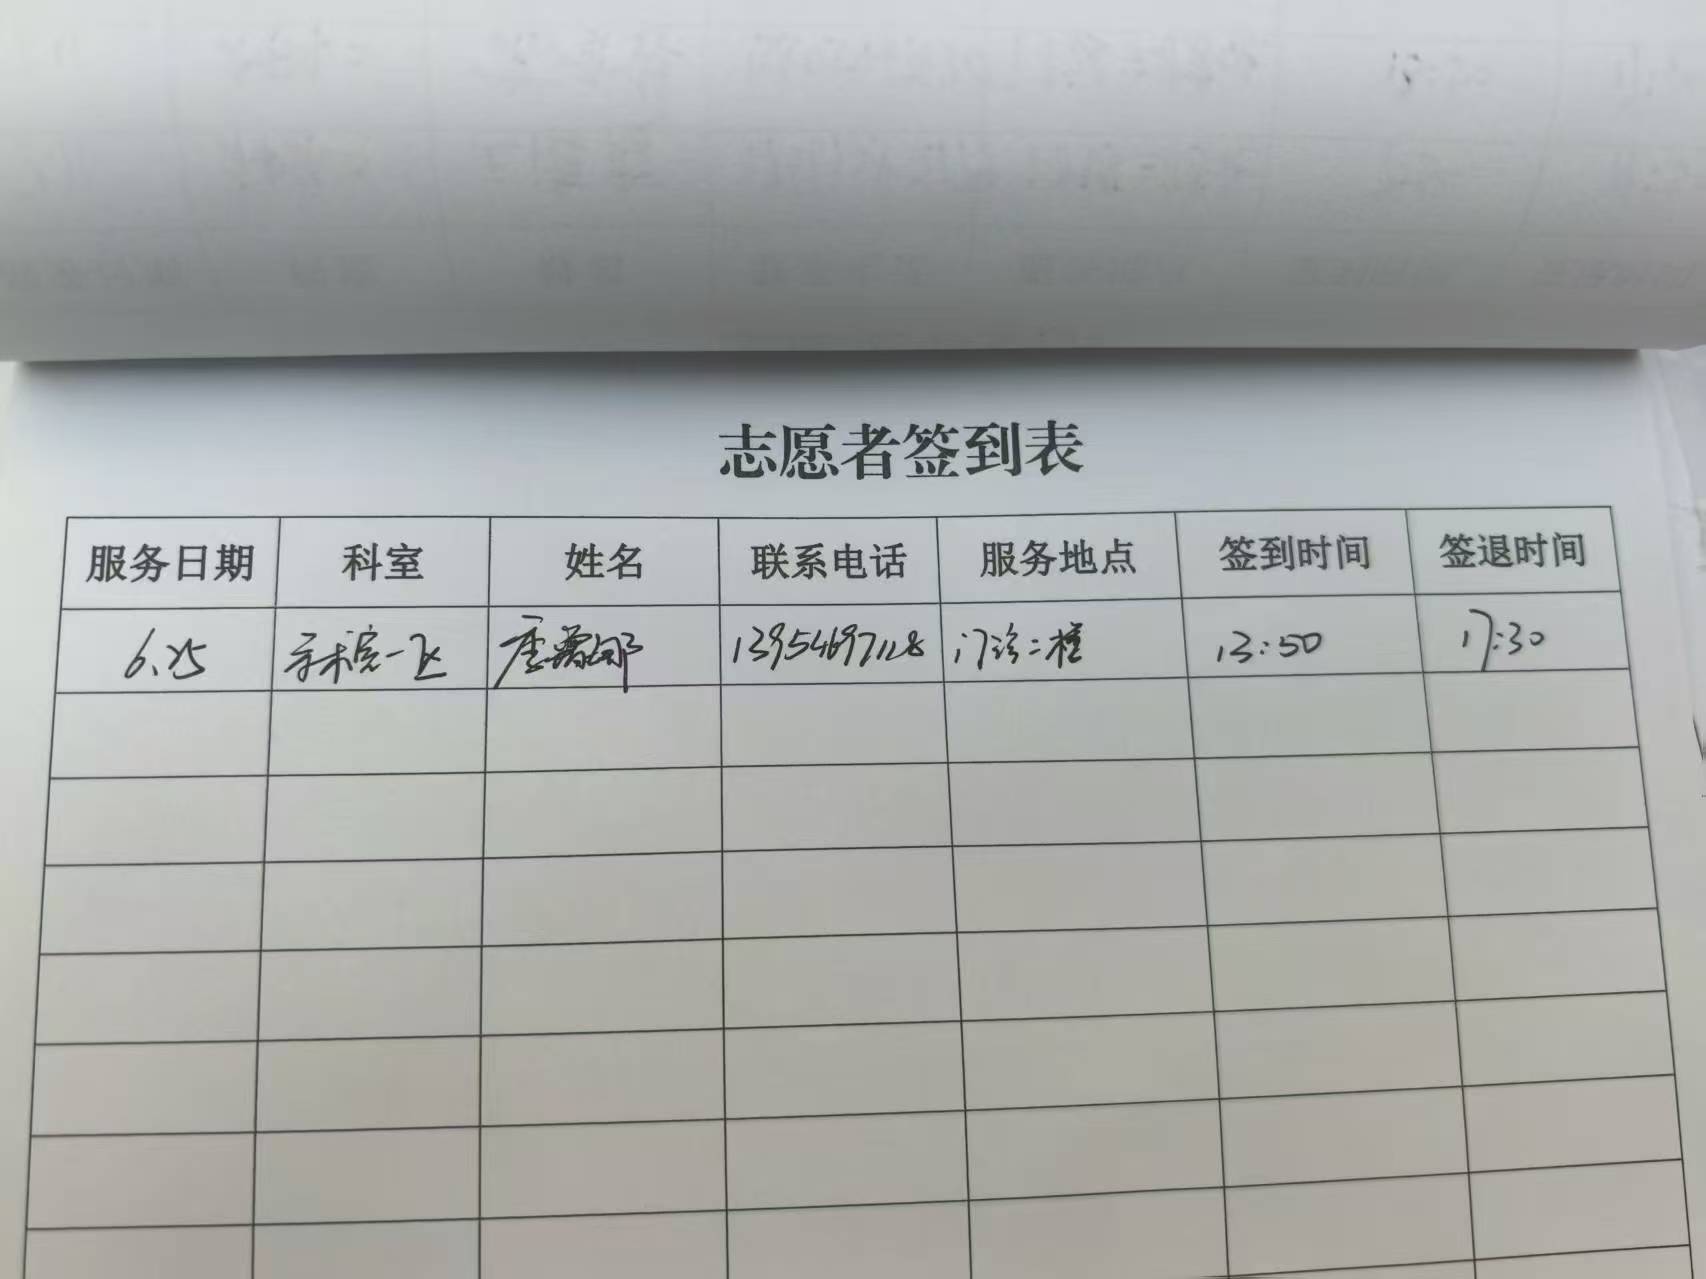 志愿者签到表
服务日期 科室 姓名 联系电话 服务地点 签到时间 签退时间
6.25 手术室一区 13954697128 门诊二楼 13:50 17:30